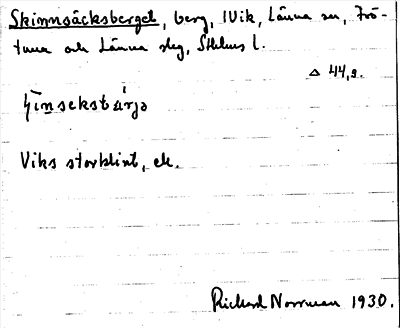 Skinnsäcksberget, berg, 1 Vik, Länna sn, Frö-
tuna och Länna slg, Sthlms l.
△ 44,9.
Viks storklint, ek.
Richard Norrman 1930.